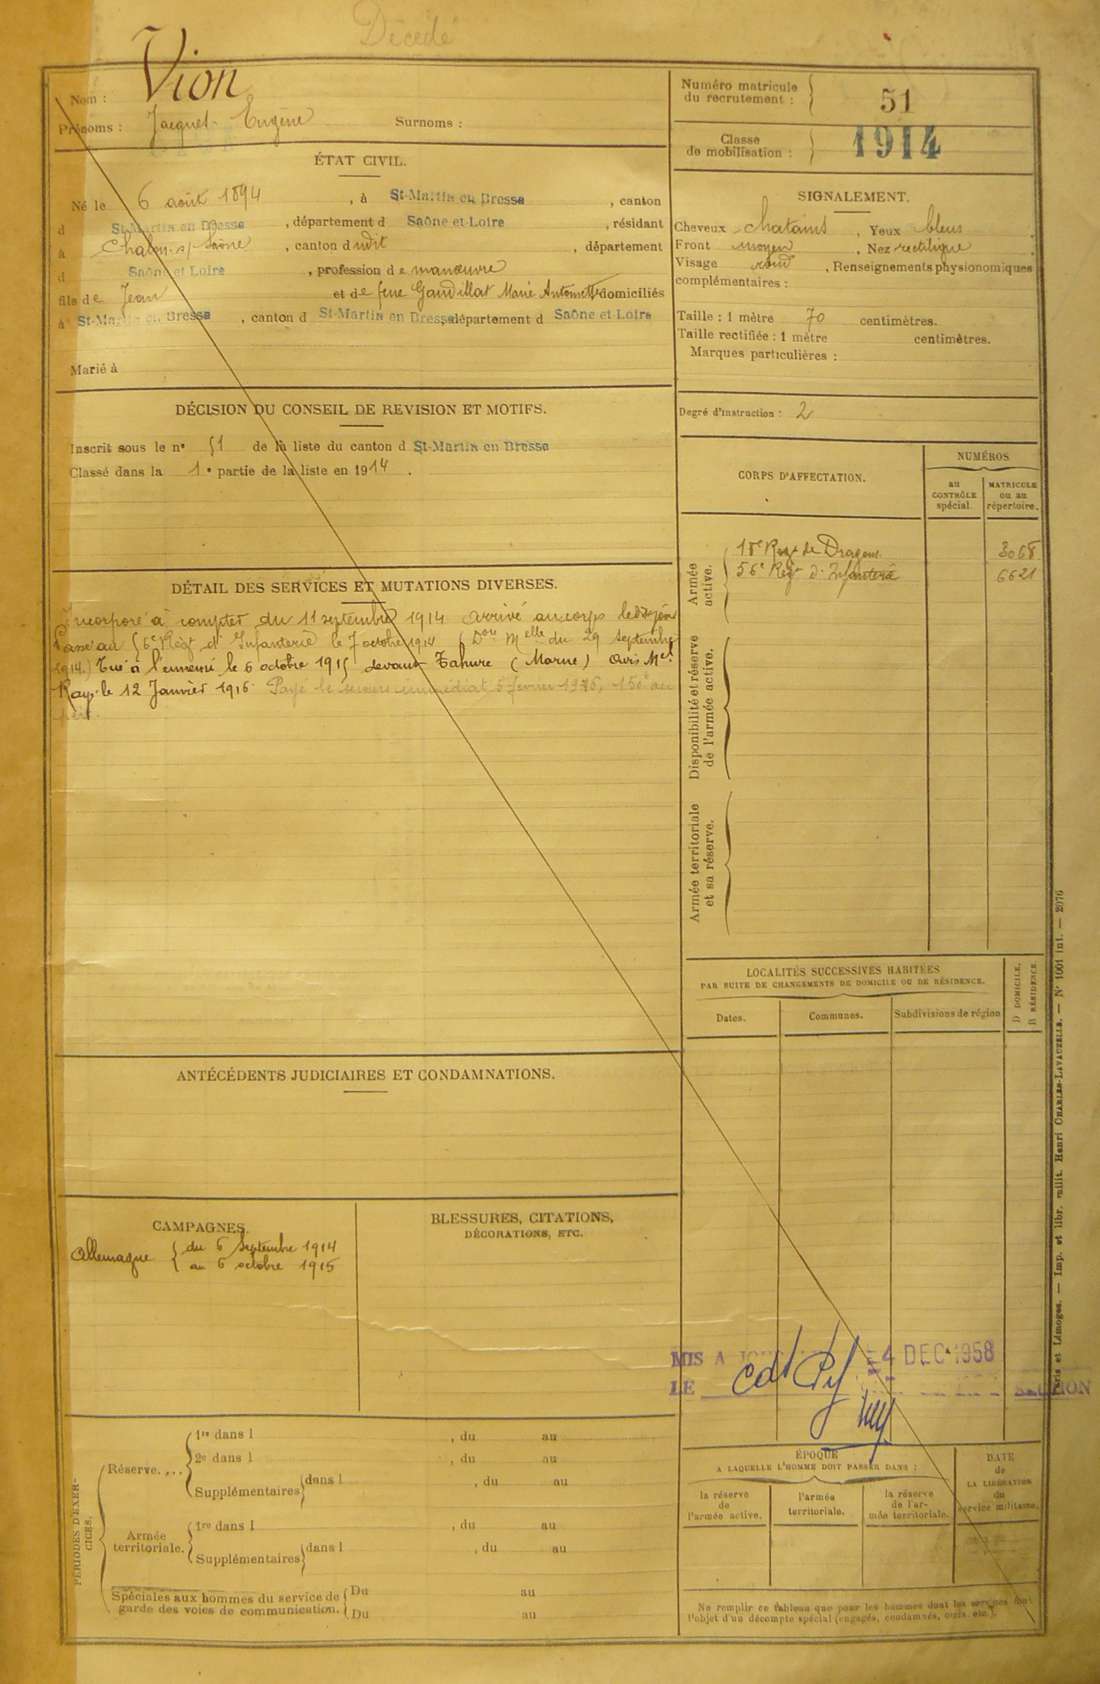 Décédé
Nom : Vion
Prénoms : Jacques Eugène Surnoms :
Numéro matricule
du recrutement : 51
Classe
de mobilisation : 1914
ÉTAT CIVIL.
Né le 6 août 1894, à St-Martin en Bresse, canton
d St-Martin en Bresse, département d Saône et Loire, résidant
à Chalon s/ Saône, canton d udit, département
d Saône et Loire, profession de manœuvre
fils de Jean et de feue Gaudillat Marie Antoinette domiciliés
à St-Martin en Bresse, canton d St-Martin en Bresse département d Saône et Loire
Marié à
SIGNALEMENT.
Cheveux chatains, Yeux bleus
Front moyen, Nez rectiligne
Visage rond, Renseignements physionomiques
complémentaires :
Taille : 1 mètre 70 centimètres.
Taille rectifiée : 1 mètre centimètres.
Marques particulières :
Degré d'instruction : 2
DÉCISION DU CONSEIL DE REVISION ET MOTIFS.
Inscrit sous le n° 51 de la liste du canton d St-Martin en Bresse
Classé dans la 1e partie de la liste en 1914.
DÉTAIL DES SERVICES ET MUTATIONS DIVERSES.
Incorporé à compter du 11 septembre 1914 arrivé au corps le
Passé au 56e Régt d'Infanterie le 7 octobre 1914 (Don Melle du 29 septembre
1914.) Tué à l'ennemi le 6 octobre 1915 devant Tahure (Marne) avis Mel
le 12 Janvier 1916. Payé le secours immédiat 5 février 1916, 150f au
père.
CORPS D'AFFECTATION.
NUMÉROS
au
CONTRÔLE
spécial.
MATRICULE
ou au
répertoire.
Armée
active.
18e Régt de Dragons 3068
56e Régt d'Infanterie 6621
Disponibilité et réserve
de l'armée active.
Armée territoriale
et sa réserve.
LOCALITÉS SUCCESSIVES HABITÉES
PAR SUITE DE CHANGEMENTS DE DOMICILE OU DE RÉSIDENCE.
Dates.
Communes.
Subdivisions de région
D DOMICILE.
R RÉSIDENCE.
ANTÉCÉDENTS JUDICIAIRES ET CONDAMNATIONS.
CAMPAGNES.
Allemagne { du 6 Septembre 1914
{ au 6 octobre 1915
BLESSURES, CITATIONS,
DÉCORATIONS, ETC.
MIS A JOUR 4 DEC 1958
LE
PÉRIODES D'EXER-
CICES.
Réserve....
1re dans l , du au
2e dans l , du au
Supplémentaires dans l , du au
Armée
territoriale.
1re dans l , du au
Supplémentaires dans l , du au
Spéciales aux hommes du service de
garde des voies de communication.
Du au
Du au
ÉPOQUE
A LAQUELLE L'HOMME DOIT PASSER DANS :
la réserve
de
l'armée active.
l'armée
territoriale.
la réserve
de l'ar-
mée territoriale.
DATE
de
LA LIBÉRATION
du
service militaire.
Ne remplir ce tableau que pour les hommes dont les services font
l'objet d'un décompte spécial (engagés, condamnés, omis, etc.).
Paris et Limoges. — Imp. et libr. milit. Henri CHARLES-LAVAUZELLE. — N° 1001 int. — 2976